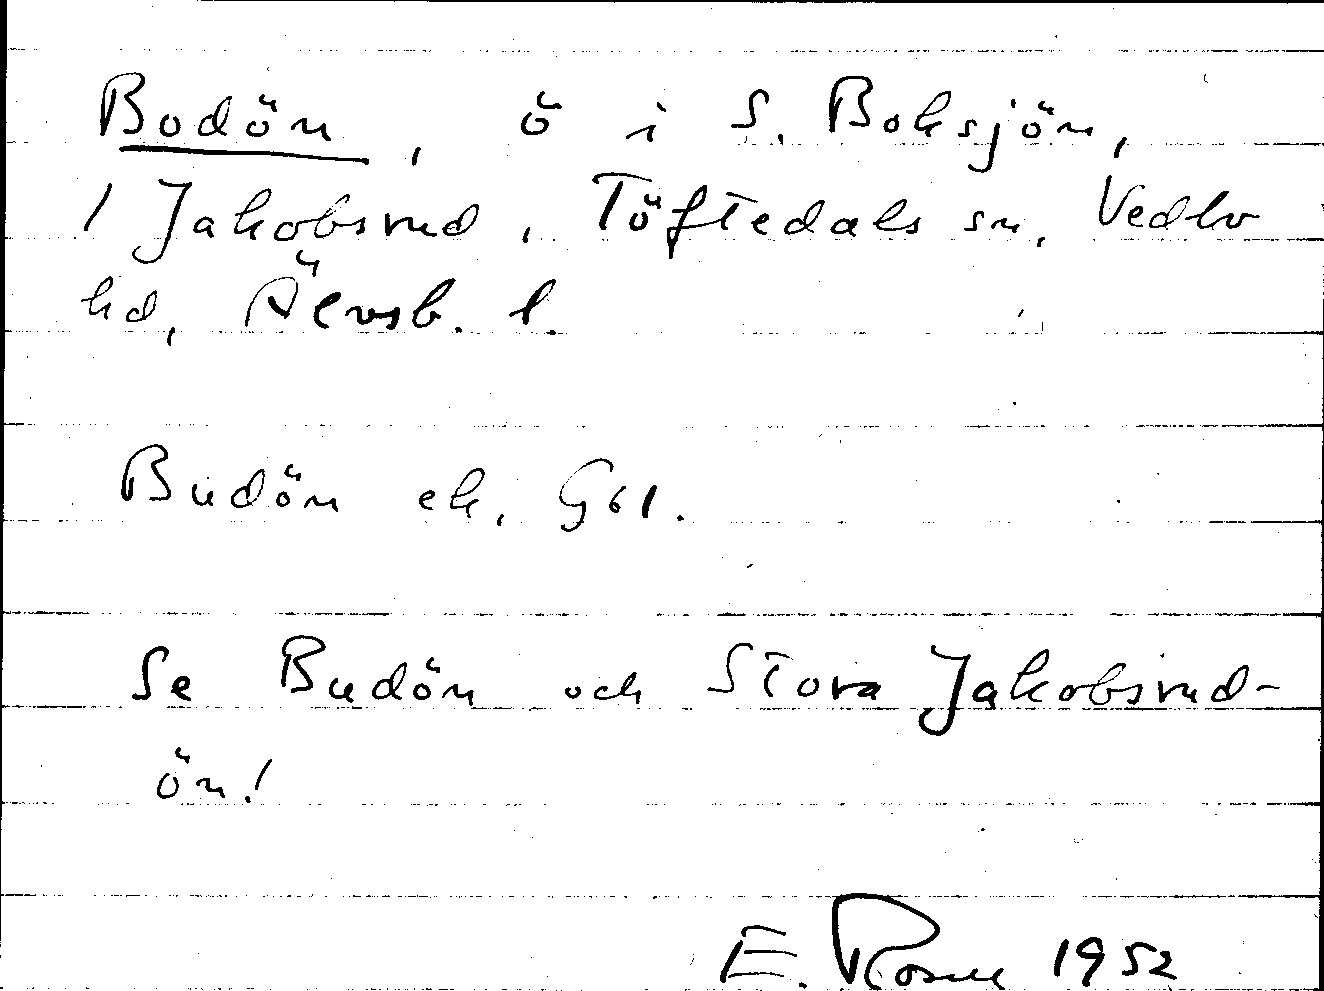 Bodön, ö i S. Boksjön,
1 Jakobsrud, Töftedals sn, Vedbo
hd, Älvsb. l.
Budön ek. G61.
Se Budön och Stora Jakobsrud-
ön!
E. Rosell 1952